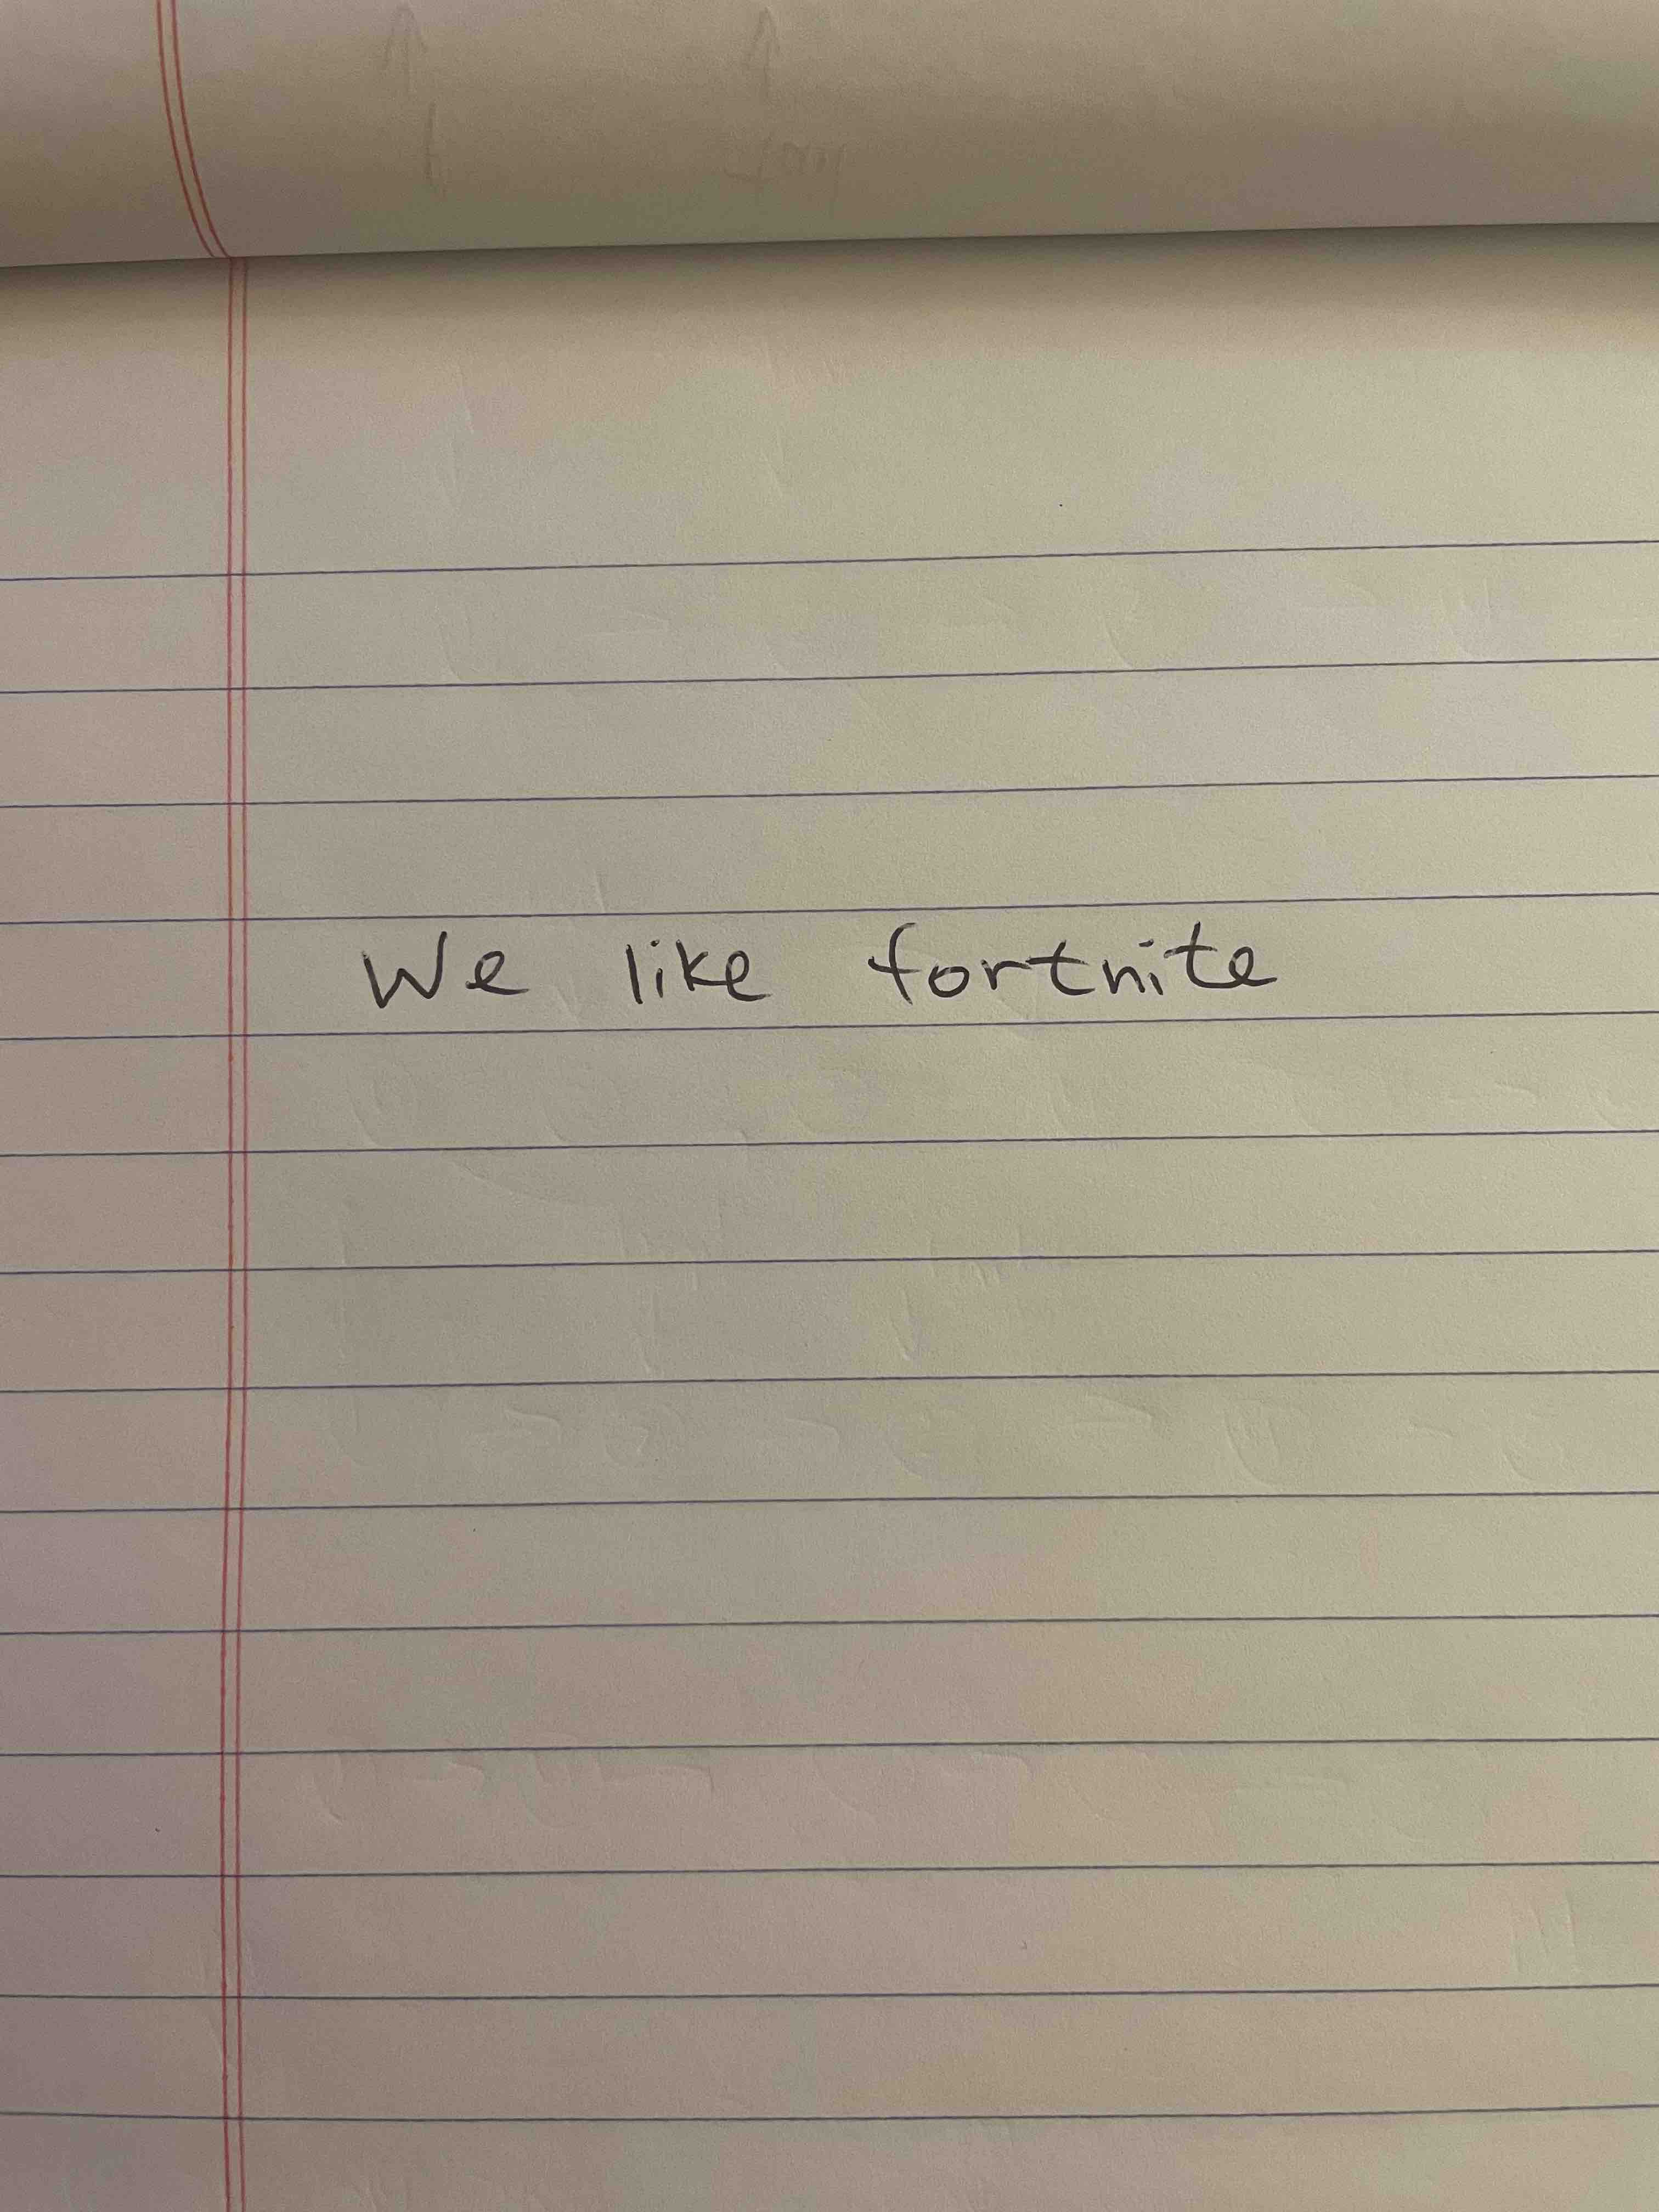 We like fortnite